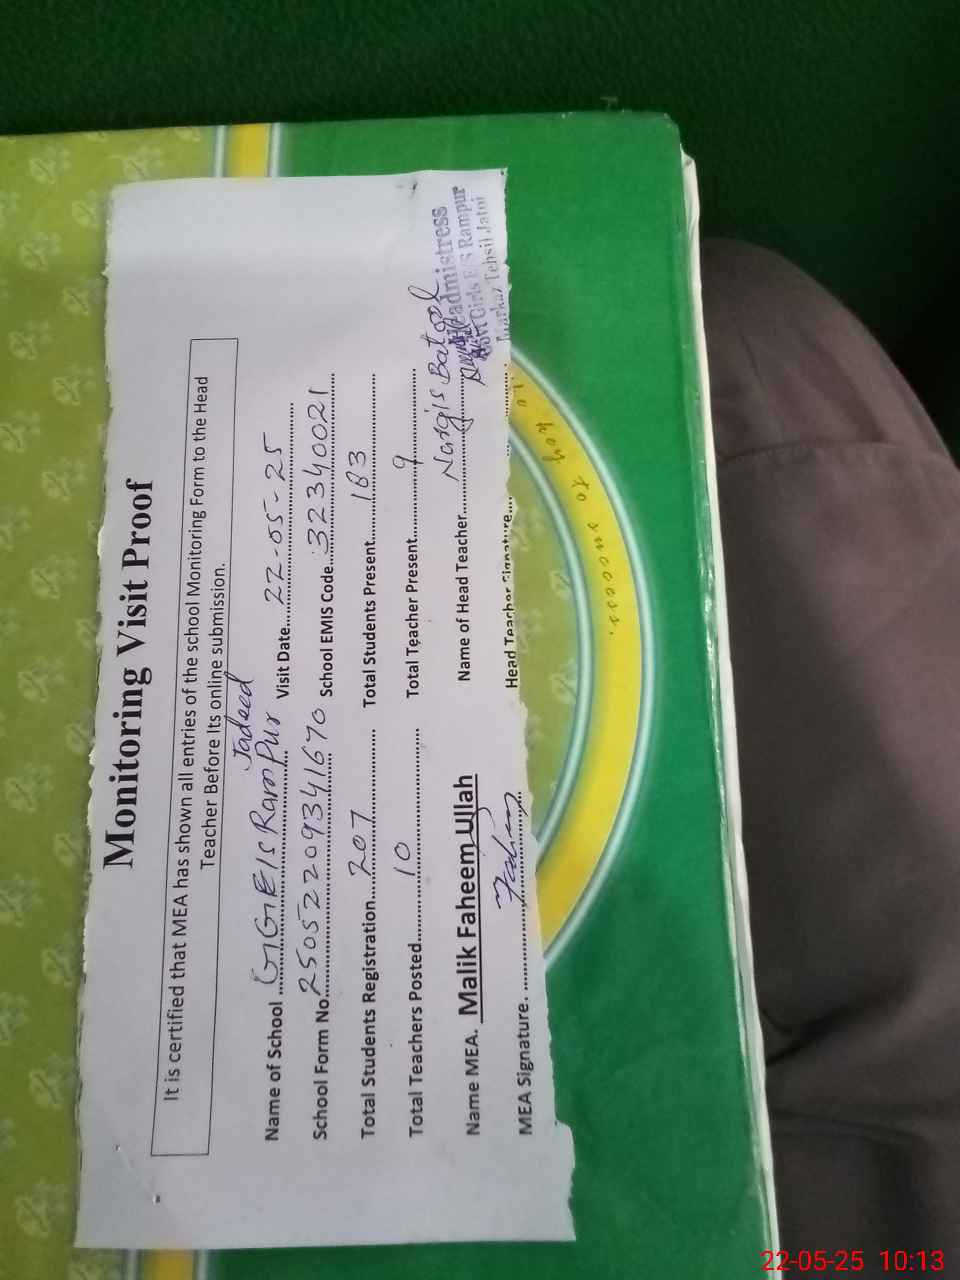 Monitoring Visit Proof
It is certified that MEA has shown all entries of the school Monitoring Form to the Head
Teacher Before Its online submission.
Jadeed
Name of School GGE/S RamPur Visit Date 22-05-25
School Form No. 25052209341670 School EMIS Code. 32340021
Total Students Registration 207 Total Students Present 183
Total Teachers Posted 10 Total Teacher Present 9
Name MEA. Malik Faheem Ullah Name of Head Teacher Nargis Batool
MEA Signature. Fahim Head Teacher Signature
Headmistress
Govt Girls E/S Rampur
Markaz Tehsil Jatoi
key to success.
22-05-25 10:13